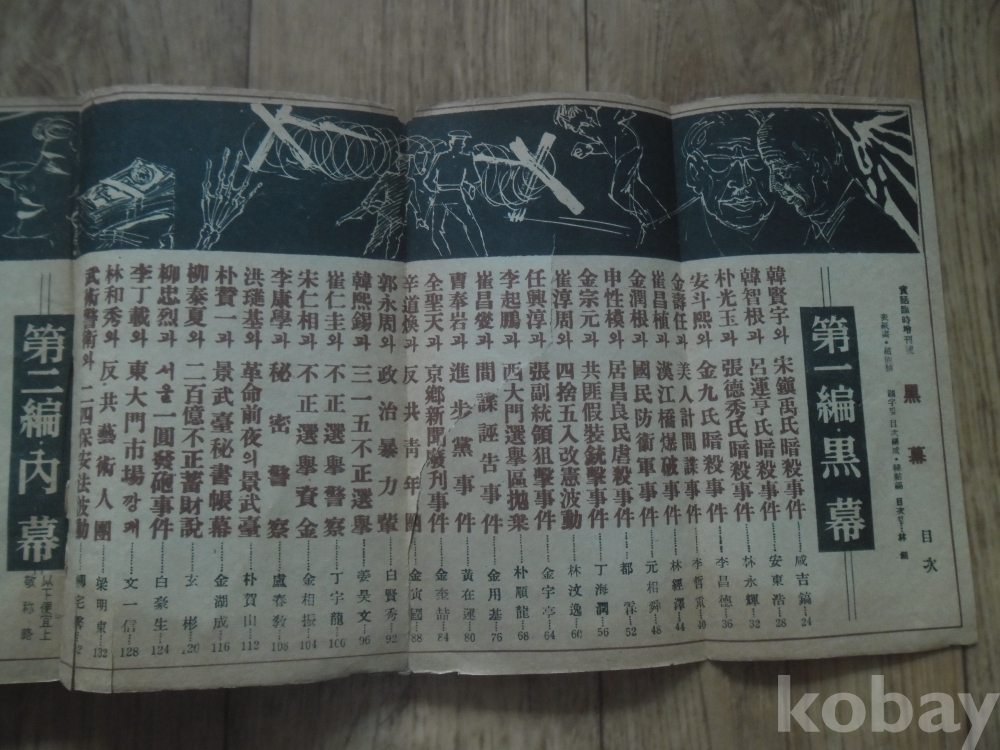 實話臨時增刊號
黑幕
目次
第一編黑幕
韓賢宇와 宋鎭禹氏暗殺事件……咸吉鎬…24
韓智根과 呂運亨氏暗殺事件……安東浩…28
朴光玉과 張德秀氏暗殺事件……林永輝…32
安斗熙와 金九氏暗殺事件……李昌德…36
金壽任과 美人計間諜事件……李哲…40
崔昌植과 漢江橋爆破事件……林經澤…44
金潤根과 國民防衛軍事件……元相舜…48
申性模와 居昌良民虐殺事件……都…52
金宗元과 共匪假裝銃擊事件……丁海潤…56
崔淳周와 四捨五入改憲波動……林汶逸…60
任興淳과 張副統領狙擊事件……金字亭…64
李起鵬과 西大門選擧區抛棄……朴順龍…68
崔昌燮과 間諜誣告事件……金用基…76
曹奉岩과 進步黨事件……黃在運…80
全聖天과 京鄕新聞廢刊事件……金奎喆…84
辛道煥과 反共靑年團……金寅…88
郭永周와 政治暴力輩……白賢秀…92
韓熙錫과 三一五不正選擧……姜吳文…96
崔仁圭와 不正選擧警察……丁宇龍…100
宋仁相과 不正選擧資金……金相振…104
李康學과 秘密警察……盧春敎…108
洪璡基와 革命前夜의景武臺……朴賀田…112
朴贊一과 景武臺秘書帳幕……金湖成…116
柳泰夏와 二百億不正蓄財說……玄彬…120
柳忠烈과 서울一圓發砲事件……白豪生…124
李丁載와 東大門市場깡패……文一信…128
林和秀와 反共藝術人團……梁明東…132
武術警衛와 二四保安法波動
第二編內幕
以下便宜上
敬稱略
kobay